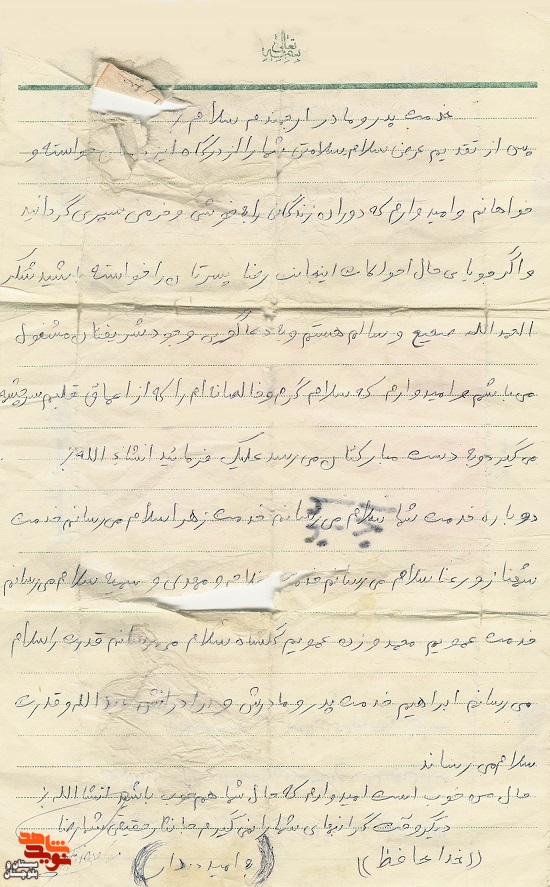 بسمه تعالی
خدمت پدر و مادر ارجمندم سلام
پس از تقدیم عرض سلام سلامتی شما را از درگاه ایزد خواسته و
خواهانم و امیدوارم که دوران زندگانی را بخوشی و خرمی سپری گردانید
و اگر جویای حال احوالات اینجانب رضا پسرتان را خواسته باشید شکر
الحمد الله صحیح و سالم هستم و به دعاگویی وجود شریفتان مشغول
می باشم و امیدوارم که سلام گرم و خالصانه ام را که از اعماق قلبم سرچشمه
می گیرد و به دست مبارکتان می رسد علیک فرمائید انشاء الله
دوباره خدمت شما سلام می رسانم خدمت زهرا سلام می رسانم خدمت
شهناز و رعنا سلام می رسانم و مهدی و سمیه سلام می رسانم
خدمت عمویم محمد و زن عمویم گلشاه سلام می رسانم قدرت را سلام
می رسانم ابراهیم خدمت پدر و مادرش و برادرانش عبدالله و قدرت
سلام می رساند
حال من خوب است امیدوارم که حال شما هم خوب باشد انشا الله
دیگر وقت گرانبهای شما را نمی گیرم جانثار حقیقی شما رضا
((خدا حافظ)) (به امید دیدار)
شاهد
نوید